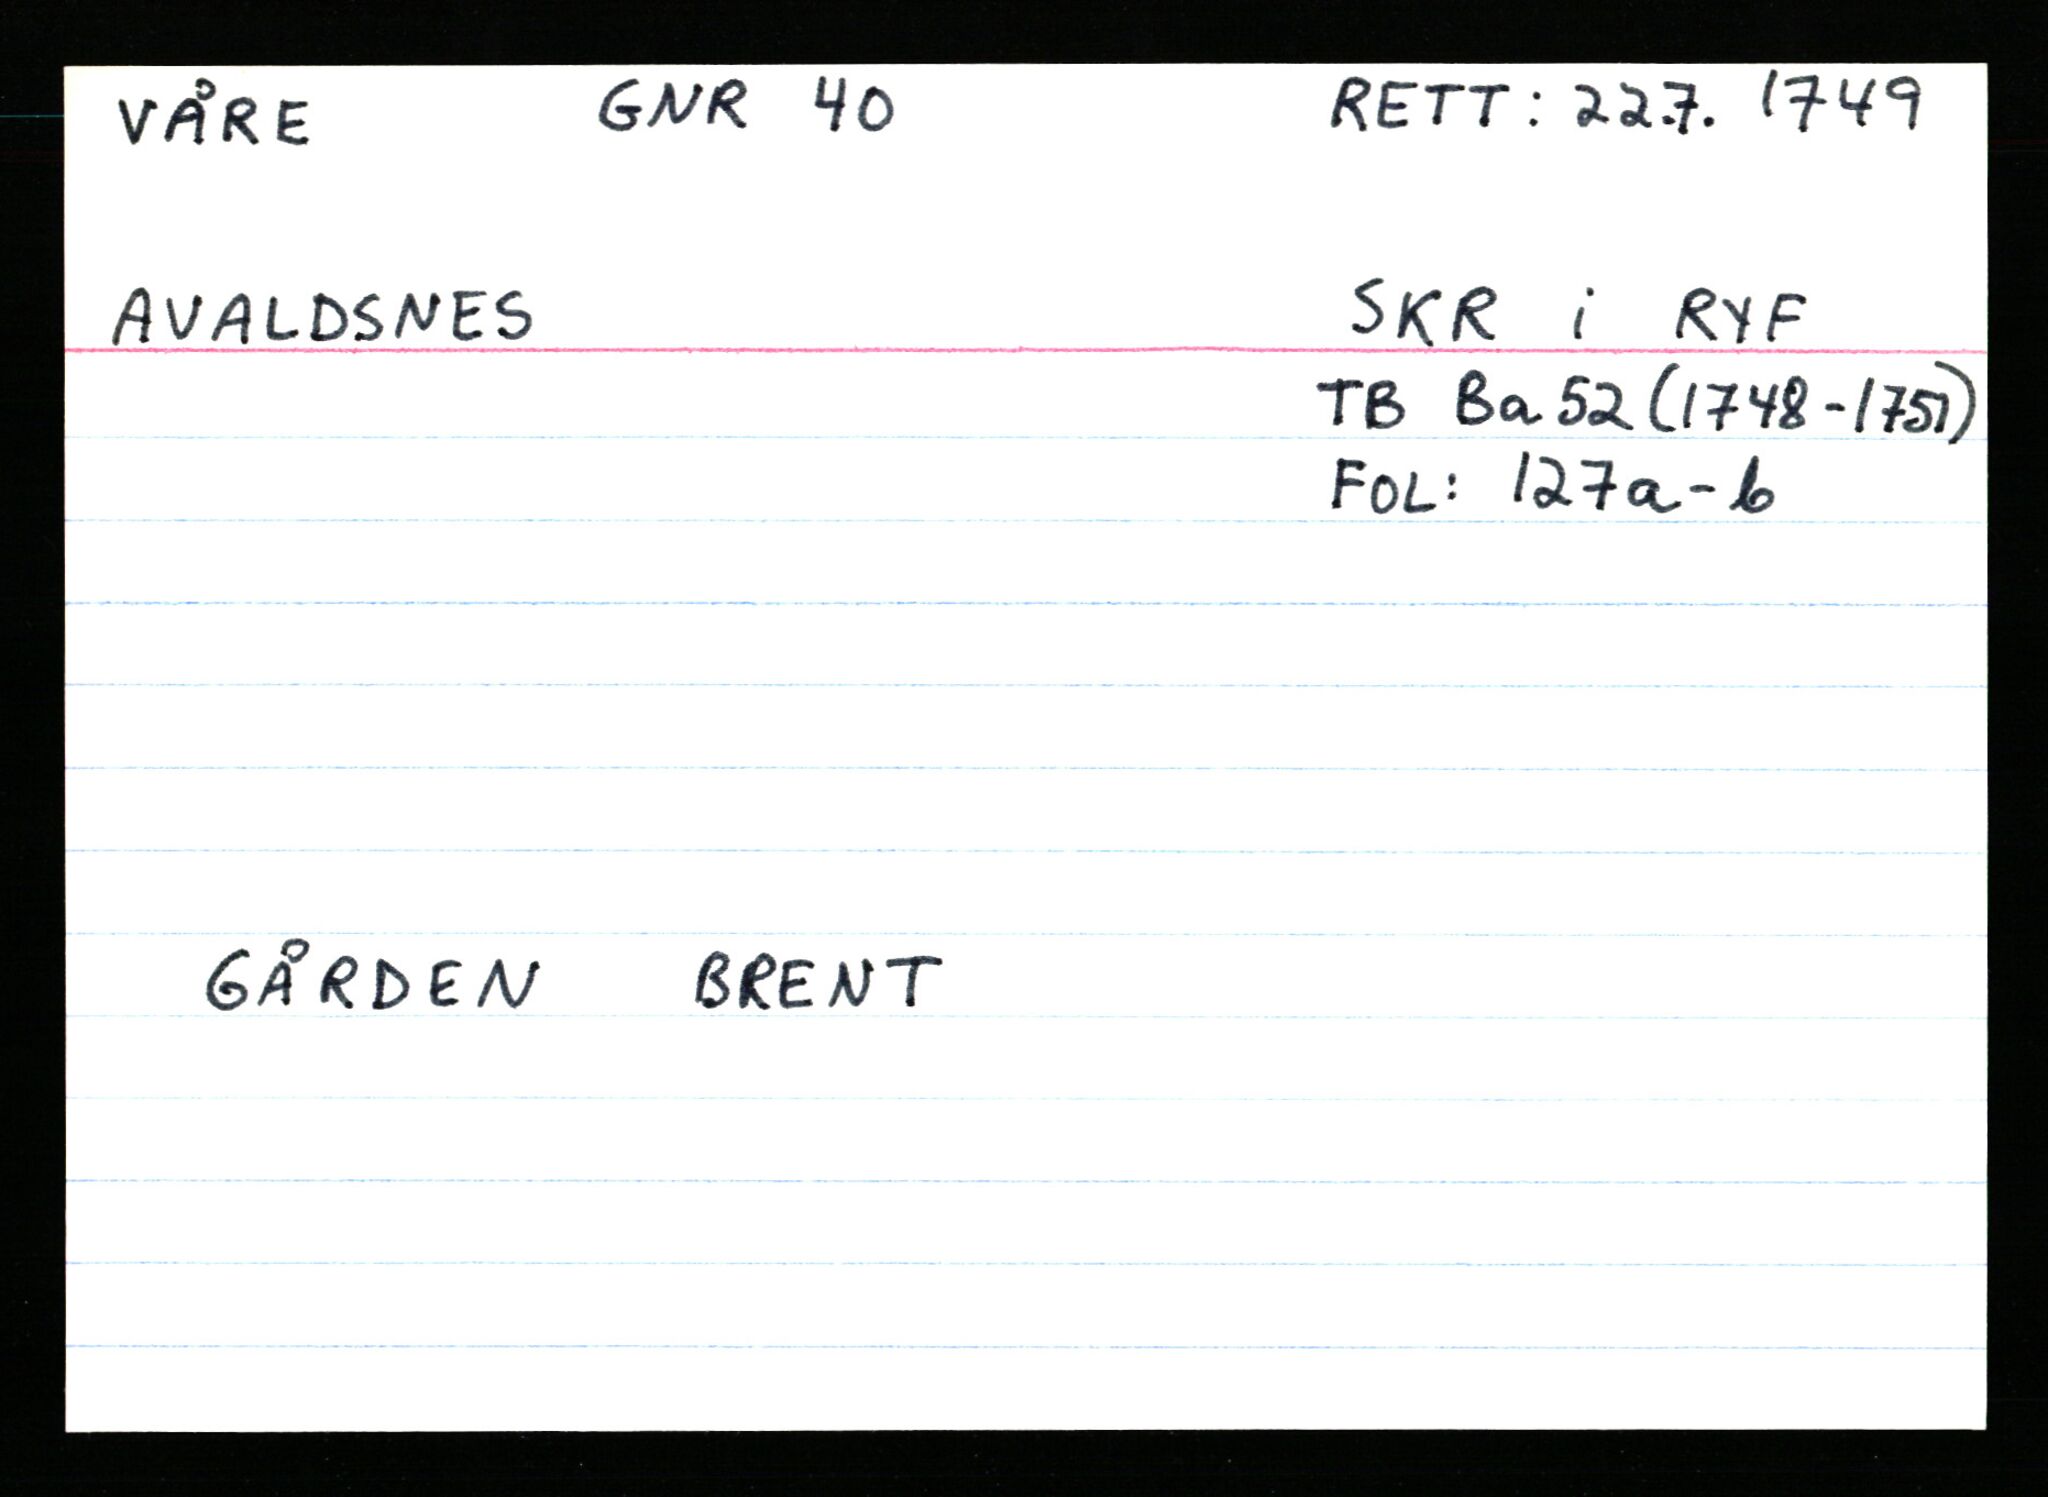 VÅRE GNR 40 RETT: 22.7. 1749
AVALDSNES SKR i RYF
TB Ba 52 (1748-1751)
FOL: 127a-b
GÅRDEN BRENT